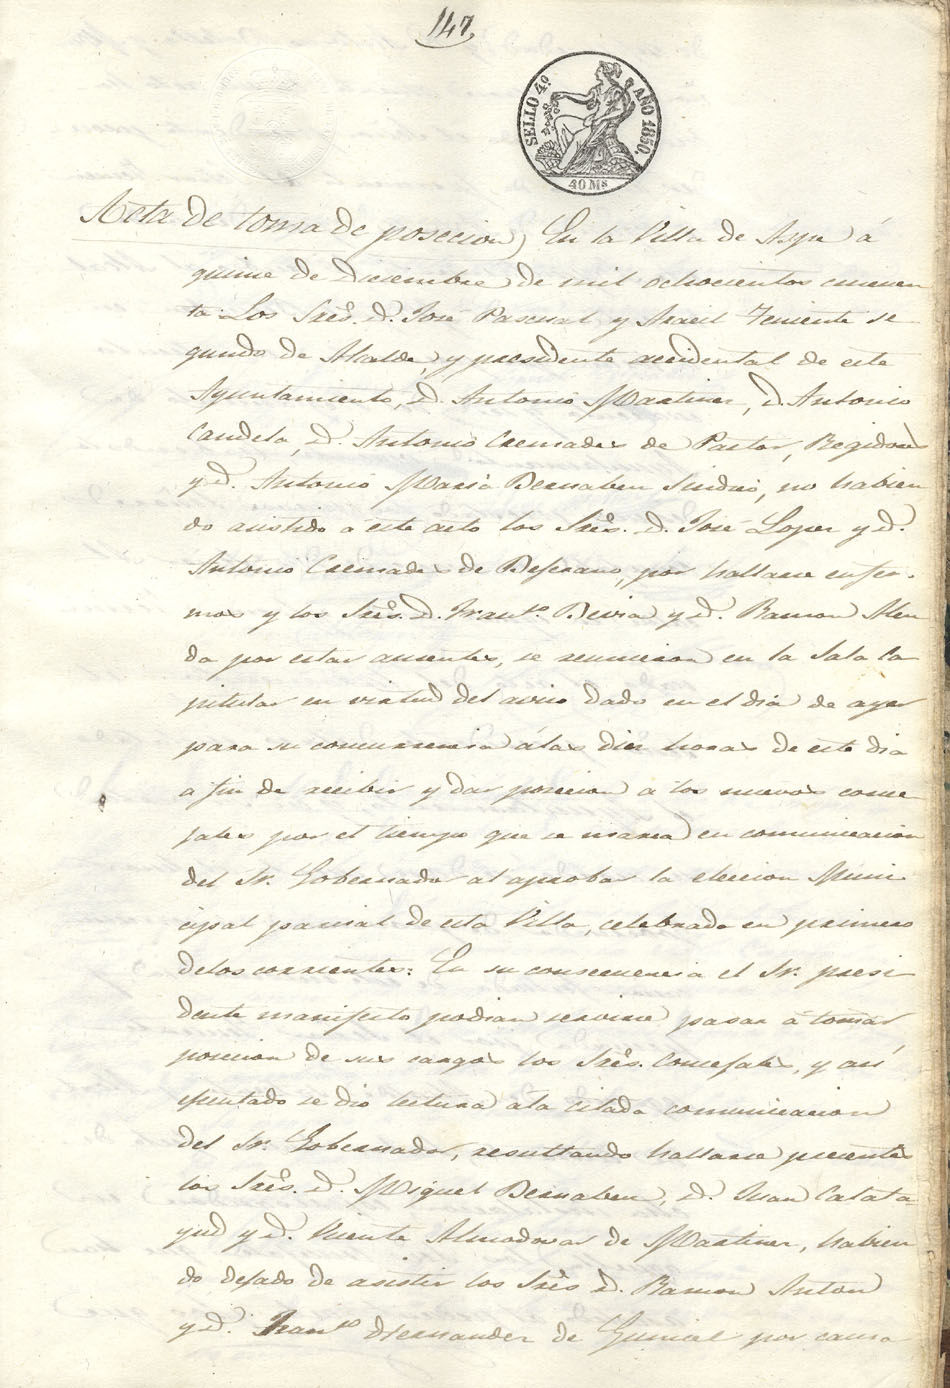 147
SELLO 4º AÑO 1850.
40 Ms
Acta de toma de posecion) En la Villa de Aspe á
quinse de Diciembre de mil ochocientos cincuen
ta: Los Sres. D. José Pascual y Aracil Teniente se
gundo de Alcalde, y presidente accidental de este
Ayuntamiento, D. Antonio Martinez, D. Antonio
Candela, D. Antonio Cremades de Pastor, Regidores
y D. Antonio Maria Bernabeu Sindico, no habien
do asistido a este acto los Sres. D. José Lopez y D.
Antonio Cremades de Beferano, por hallarse enfer-
mos y los Sres. D. Franco. Bevia y D. Ramon Alen
da por estar ausentes, se reunieron en la Sala Ca
pitular en virtud del aviso dado en el dia de ayer
para su concurrencia á las diez horas de este dia
a fin de recibir y dar posecion a los nuevos conce
jales por el tiempo que se marca en comunicacion
del Sr. Gobernador al aprobar la eleccion Muni
cipal parcial de esta Villa, celebrada en primero
delos corrientes: En su consecuencia el Sr. presi
dente manifesto podian servirse pasar a tomar
posecion de sus cargos los Sres. Concejales, y así
ejecutado se dio lectura ála citada comunicacion
del Sr. Gobernador, resultando hallarse presentes
los Sres. D. Miguel Bernabeu, D. Juan Calata
yud y D. Vicente Almodovar de Martinez, habien
do dejado de asistir los Sres D. Ramon Anton
y D. Franco. Hernandez de Guincal por causa